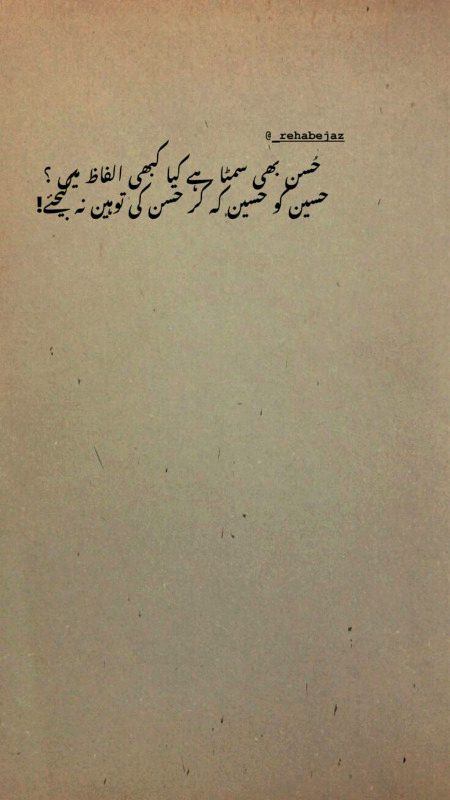 @_rehabejaz
حُسن بھی سمٹا ہے کیا کبھی الفاظ میں ؟
حسین کو حسین کہ کر حسن کی توہین نہ کیجئے!